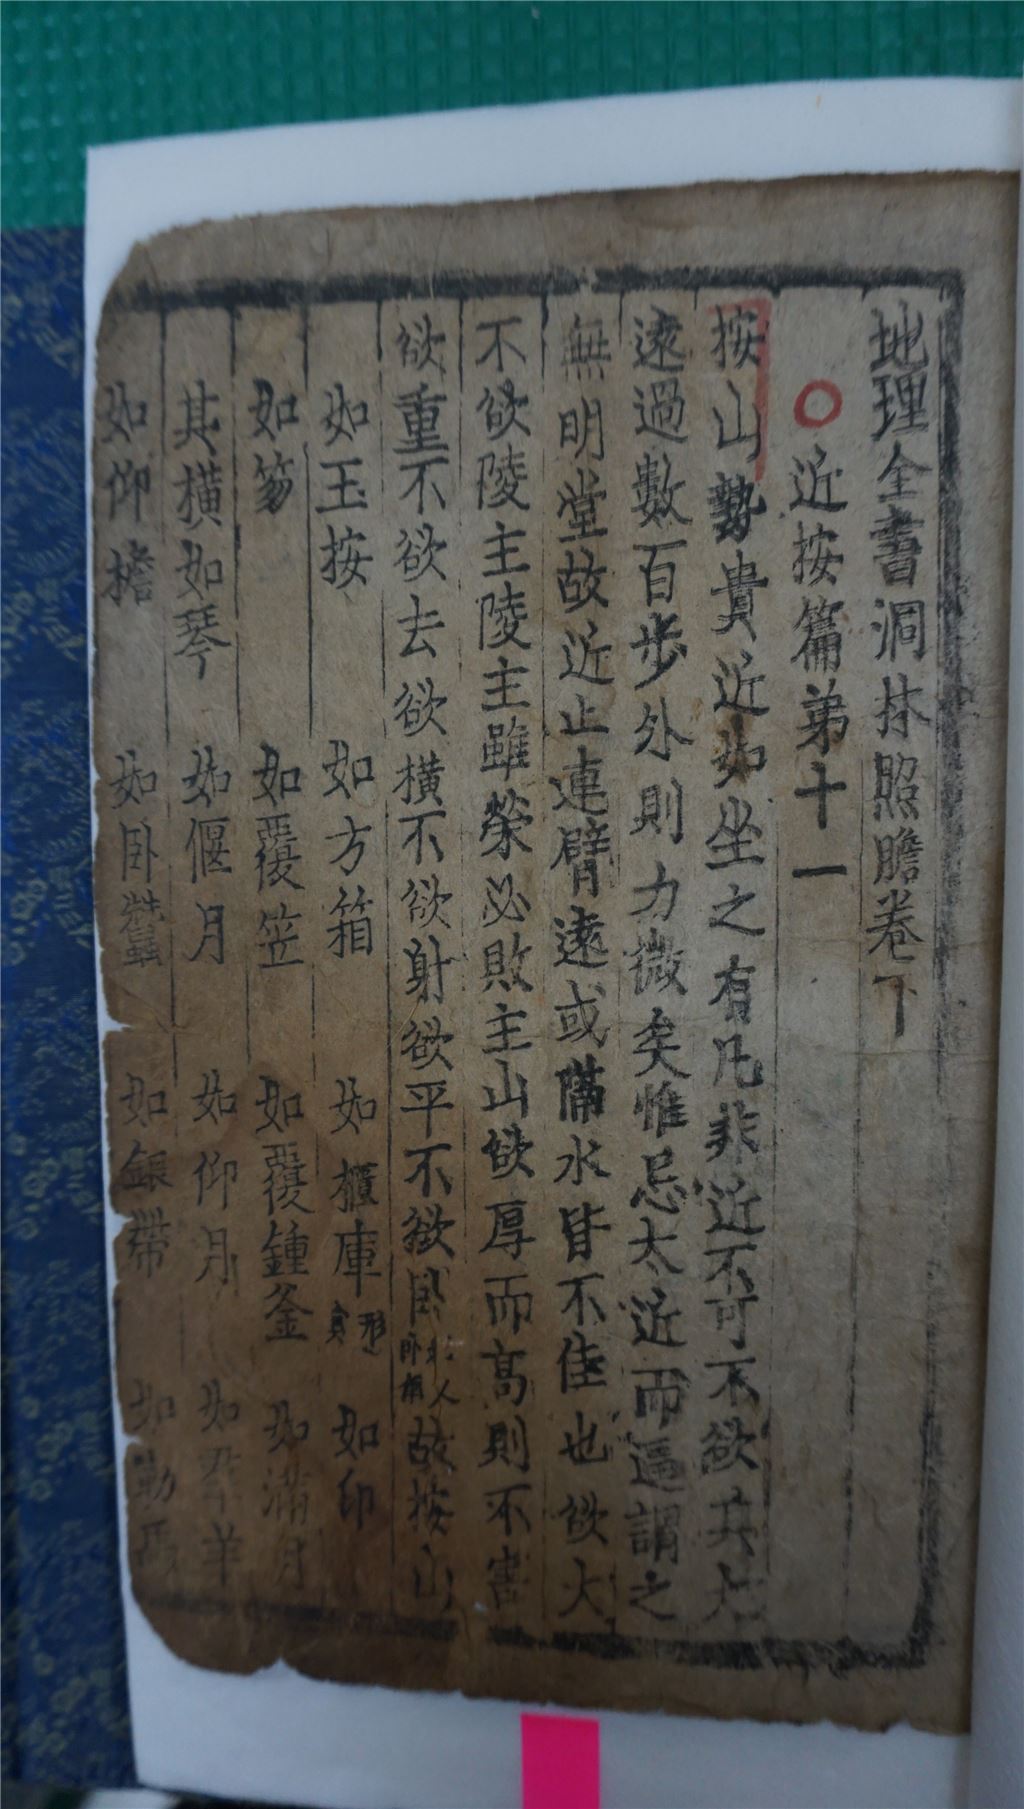 地理全書洞林照膽卷下
○近按篇弟十一
按山勢貴近如坐之有凡非近不可不欲其大
遠過數百步外則力微矣惟忌太近而逼謂之
無明堂故近止連臂遠或隔水皆不佳也欲大
不欲陵主陵主雖榮必敗主山欲厚而高則不害
欲重不欲去欲橫不欲射欲平不欲臥故按山
如玉按 如方箱 如櫃庫 如印
如笏 如覆笠 如覆鍾釜 如滿月
其橫如琴 如偃月 如仰月 如羣羊
如仰檐 如臥蠶 如銀帶 如勒馬